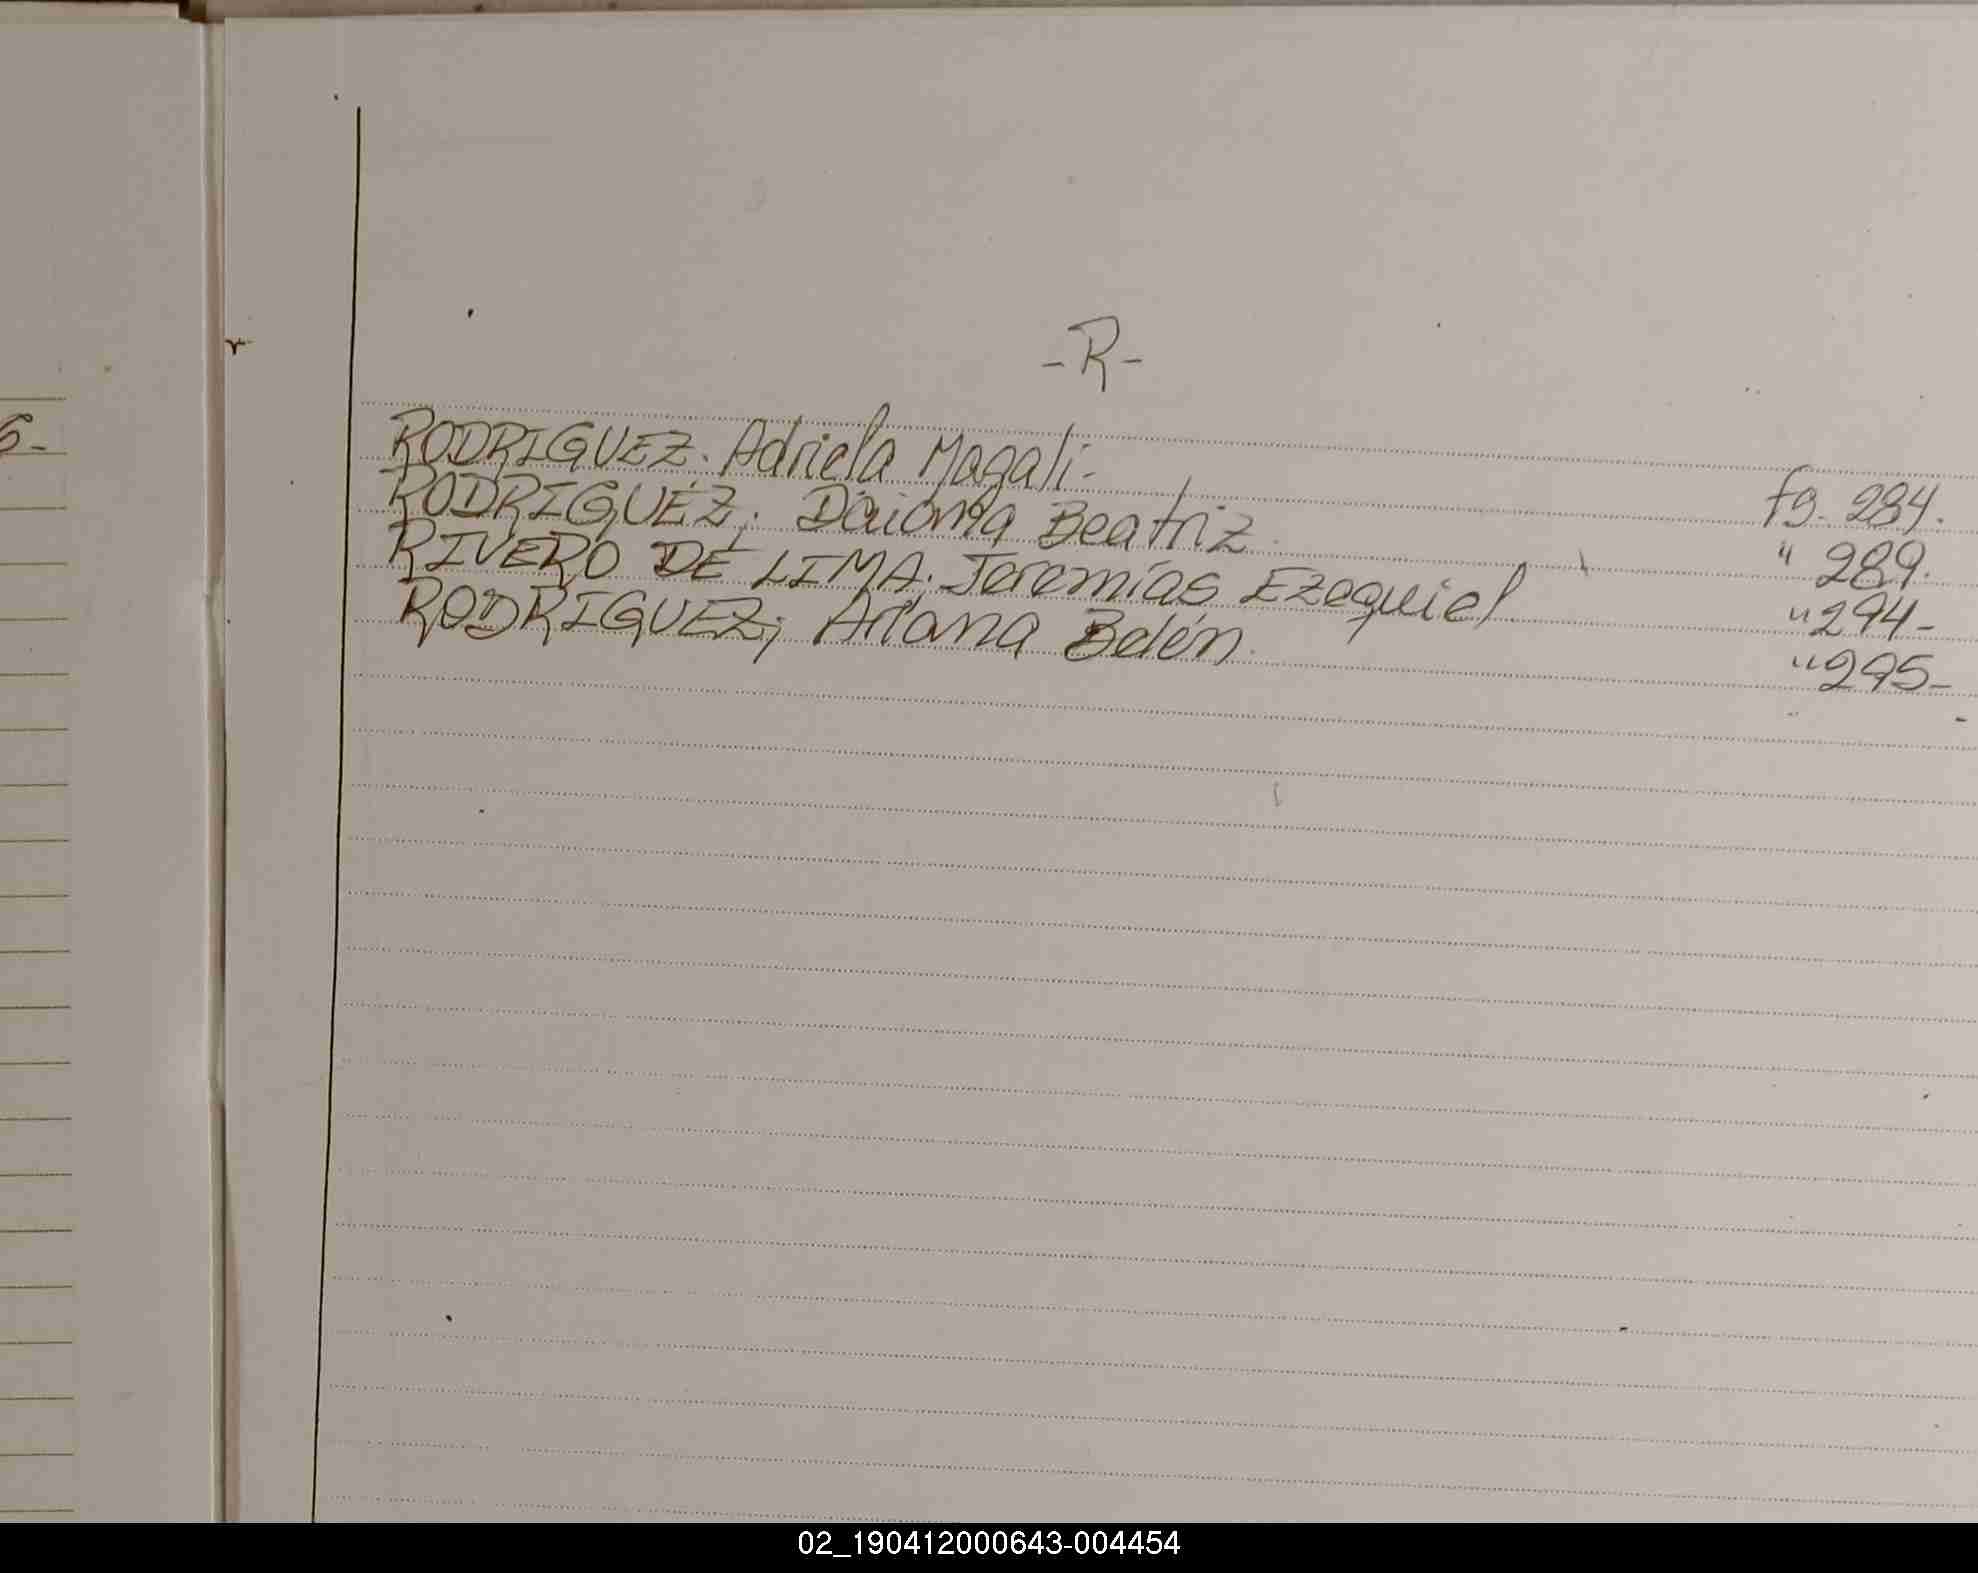 6-
-R-
RODRIGUEZ. Adriela Magali- fg. 284.
RODRIGUEZ; Daiana Beatriz. " 289.
RIVERO DE LIMA. Jeremías Ezequiel " 294-
RODRIGUEZ; Ariana Belén. " 295-
02_190412000643-004454